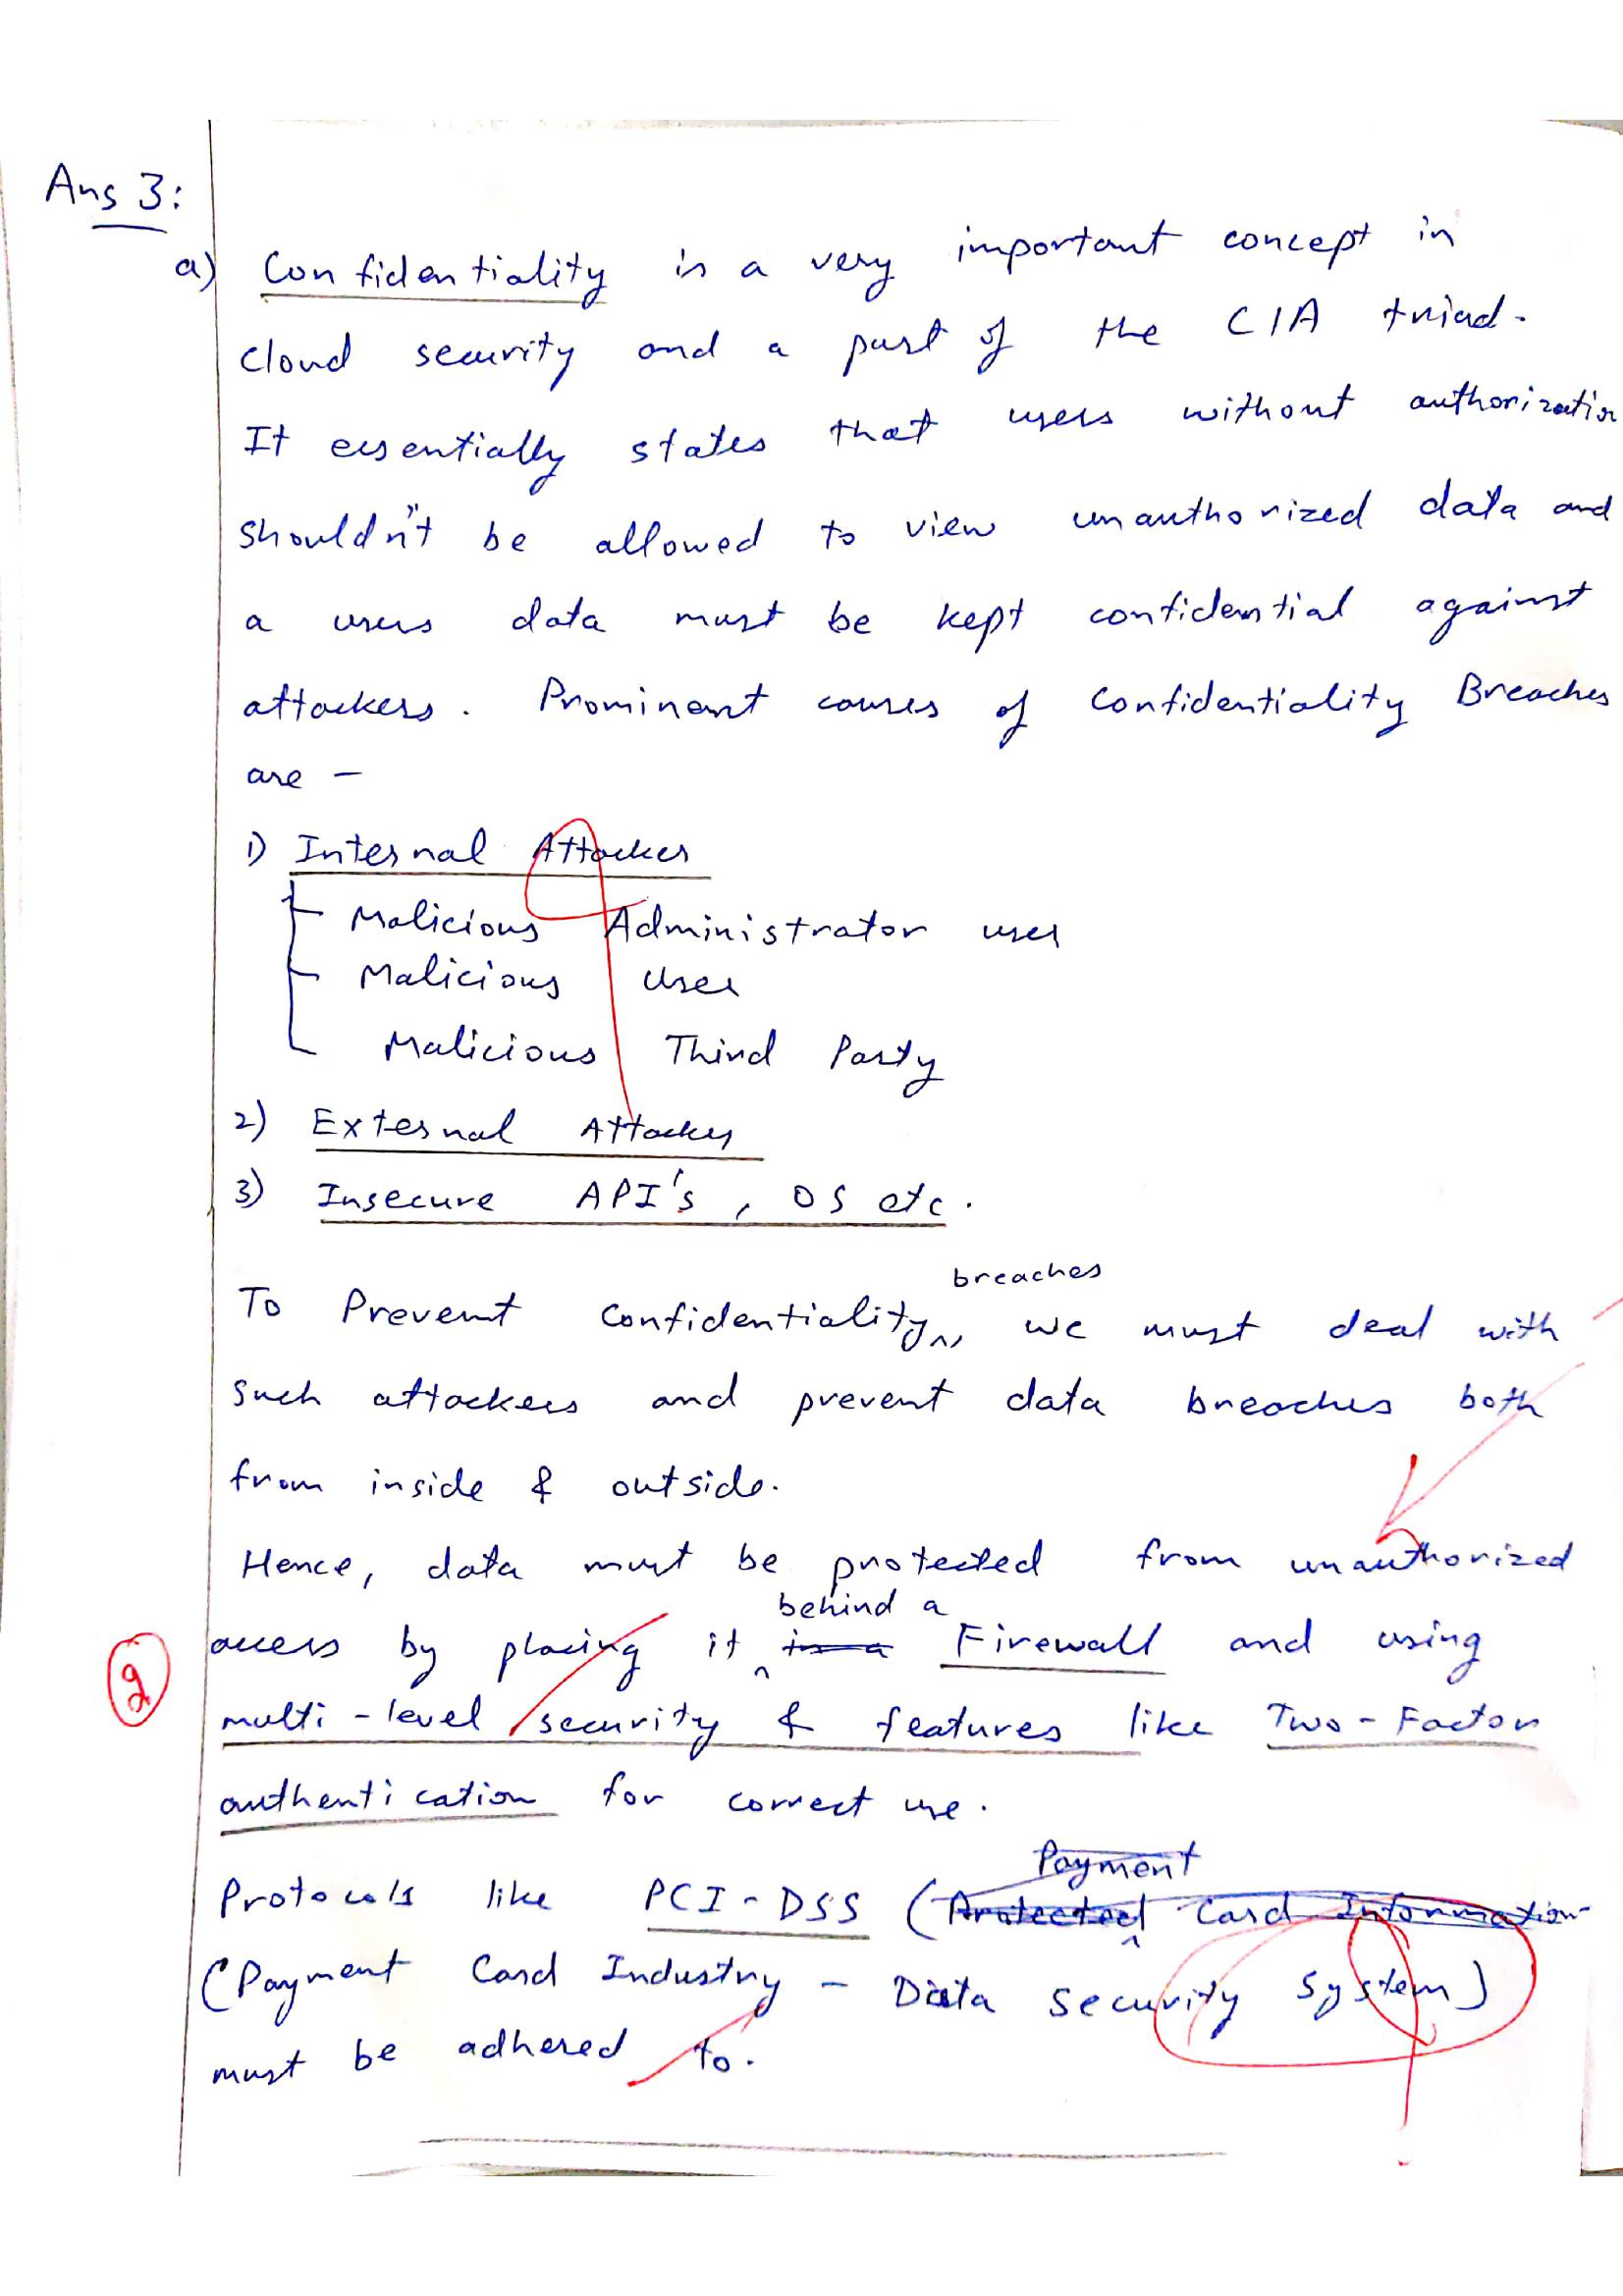 Ans 3:
a) Confidentiality is a very important concept in
cloud security and a part of the CIA triad.
It essentially states that users without authorization
shouldn't be allowed to view unauthorized data and
a users data must be kept confidential against
attackers. Prominent causes of Confidentiality Breaches
are -
1) Internal Attacker
Malicious Administrator user
Malicious User
Malicious Third Party
2) External Attacker
3) Insecure API's, OS etc.
breaches
To Prevent Confidentiality, we must deal with
such attackers and prevent data breaches both
from inside & outside.
Hence, data must be protected from unauthorized
behind a
access by placing it in a Firewall and using
2
multi-level security & features like Two-Factor
authentication for correct use.
Payment
Protocols like PCI-DSS (Protected Card Information-
(Payment Card Industry - Data Security System)
must be adhered to.